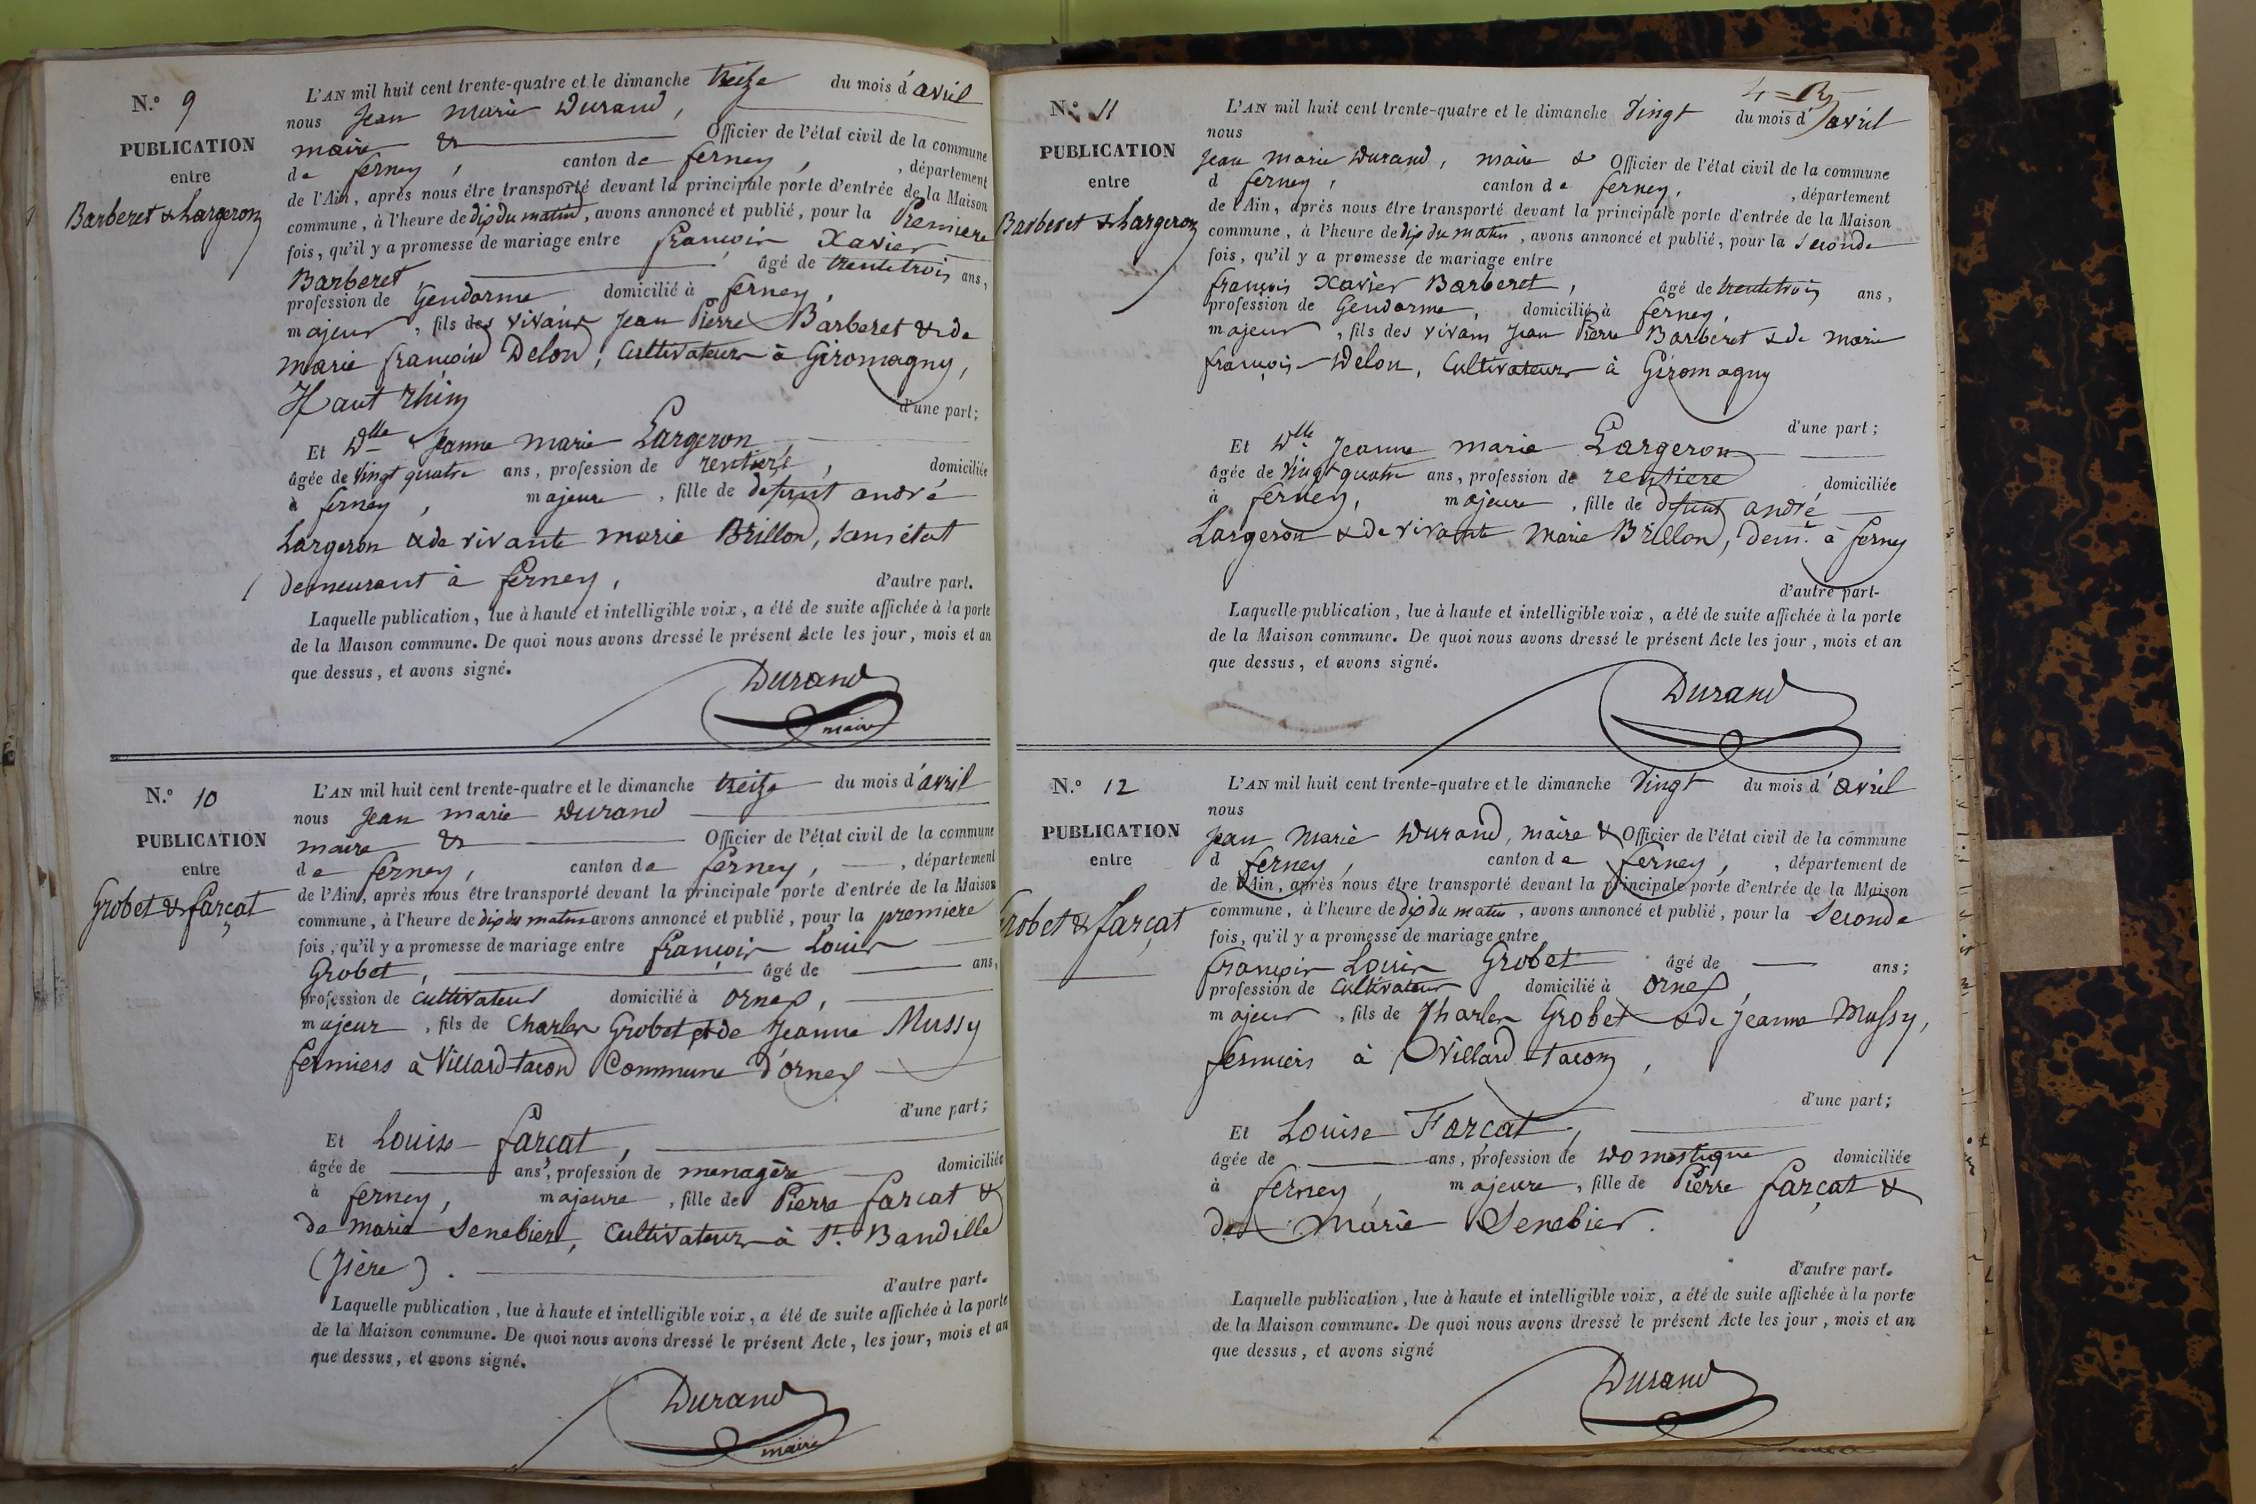 N.° 9
PUBLICATION
entre
Barberet & Largeron
L'AN mil huit cent trente-quatre et le dimanche treize du mois d'avril
nous Jean Marie Durand,
maire & Officier de l'état civil de la commune
de ferney, canton de ferney, , département
de l'Ain, après nous être transporté devant la principale porte d'entrée de la Maison
commune, à l'heure de dix du matin, avons annoncé et publié, pour la Premiere
fois, qu'il y a promesse de mariage entre françois Xavier
Barberet, âgé de trentetrois ans,
profession de Gendarme domicilié à ferney,
majeur, fils des vivants Jean Pierre Barberet & de
marie françoise Delon, Cultivateurs à Giromagny,
Haut Rhin d'une part;
Et Dlle Jeanne Marie Largeron,
âgée de vingt quatre ans, profession de rentiere, domiciliée
à ferney, majeure, fille de defunt andré
Largeron & de vivante marie Brillon, sans état
demeurant à ferney, d'autre part.
Laquelle publication, lue à haute et intelligible voix, a été de suite affichée à la porte
de la Maison commune. De quoi nous avons dressé le présent Acte les jour, mois et an
que dessus, et avons signé.
Durand
maire
N.° 10
PUBLICATION
entre
Grobet & farçat
L'AN mil huit cent trente-quatre et le dimanche treize du mois d'avril
nous Jean marie Durand
maire & Officier de l'état civil de la commune
de ferney, canton de ferney, , département
de l'Ain, après nous être transporté devant la principale porte d'entrée de la Maison
commune, à l'heure de dix du matin avons annoncé et publié, pour la premiere
fois, qu'il y a promesse de mariage entre françois Louis
Grobet, âgé de ans,
profession de cultivateur domicilié à ornex,
majeur, fils de Charles Grobet et de Jeanne Mussy
fermiers à Villard-tacon Commune d'ornex
d'une part;
Et Louise farçat,
âgée de ans, profession de menagère domiciliée
à ferney, majeure, fille de Pierre farcat &
de marie Senebier, Cultivateurs à St. Baudille
(Isère). d'autre part.
Laquelle publication, lue à haute et intelligible voix, a été de suite affichée à la porte
de la Maison commune. De quoi nous avons dressé le présent Acte, les jour, mois et an
que dessus, et avons signé.
Durand
maire
N.° 11
PUBLICATION
entre
Barberet & Largeron
L'AN mil huit cent trente-quatre et le dimanche Vingt du mois d'avril
nous
Jean Marie Durand, maire & Officier de l'état civil de la commune
d ferney, canton de ferney, , département
de l'Ain, après nous être transporté devant la principale porte d'entrée de la Maison
commune, à l'heure de dix du matin, avons annoncé et publié, pour la seconde
fois, qu'il y a promesse de mariage entre
françois Xavier Barberet, âgé de trentetrois ans,
profession de Gendarme, domicilié à ferney,
majeur, fils des vivans Jean Pierre Barberet & de marie
françoise Delon, Cultivateurs à Giromagny
d'une part;
Et Dlle Jeanne marie Largeron
âgée de vingt quatre ans, profession de rentiere domiciliée
à ferney, majeure, fille de defunt andré
Largeron & de vivante Marie Brillon, dem. à ferney
d'autre part-
Laquelle publication, lue à haute et intelligible voix, a été de suite affichée à la porte
de la Maison commune. De quoi nous avons dressé le présent Acte les jour, mois et an
que dessus, et avons signé.
Durand
N.° 12
PUBLICATION
entre
Grobet & farçat
L'AN mil huit cent trente-quatre et le dimanche Vingt du mois d'avril
nous
Jean Marie Durand, maire & Officier de l'état civil de la commune
d ferney, canton de ferney, , département de
de l'Ain, après nous être transporté devant la principale porte d'entrée de la Maison
commune, à l'heure de dix du matin, avons annoncé et publié, pour la seconde
fois, qu'il y a promesse de mariage entre
françois Louis Grobet âgé de ans;
profession de Cultivateur domicilié à ornex
majeur, fils de Charles Grobet & de Jeanne Mussy,
fermiers à Villard-tacon,
d'une part;
Et Louise Farçat,
âgée de ans, profession de Domestique domiciliée
à ferney, majeure, fille de Pierre farçat &
de Marie Senebier.
d'autre part.
Laquelle publication, lue à haute et intelligible voix, a été de suite affichée à la porte
de la Maison commune. De quoi nous avons dressé le présent Acte les jour, mois et an
que dessus, et avons signé
Durand